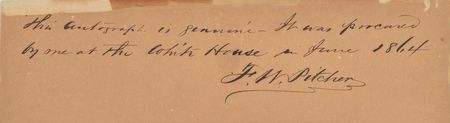 This autograph is genuine - It was procured
by me at the White House in June 1864
F. W. Pitcher